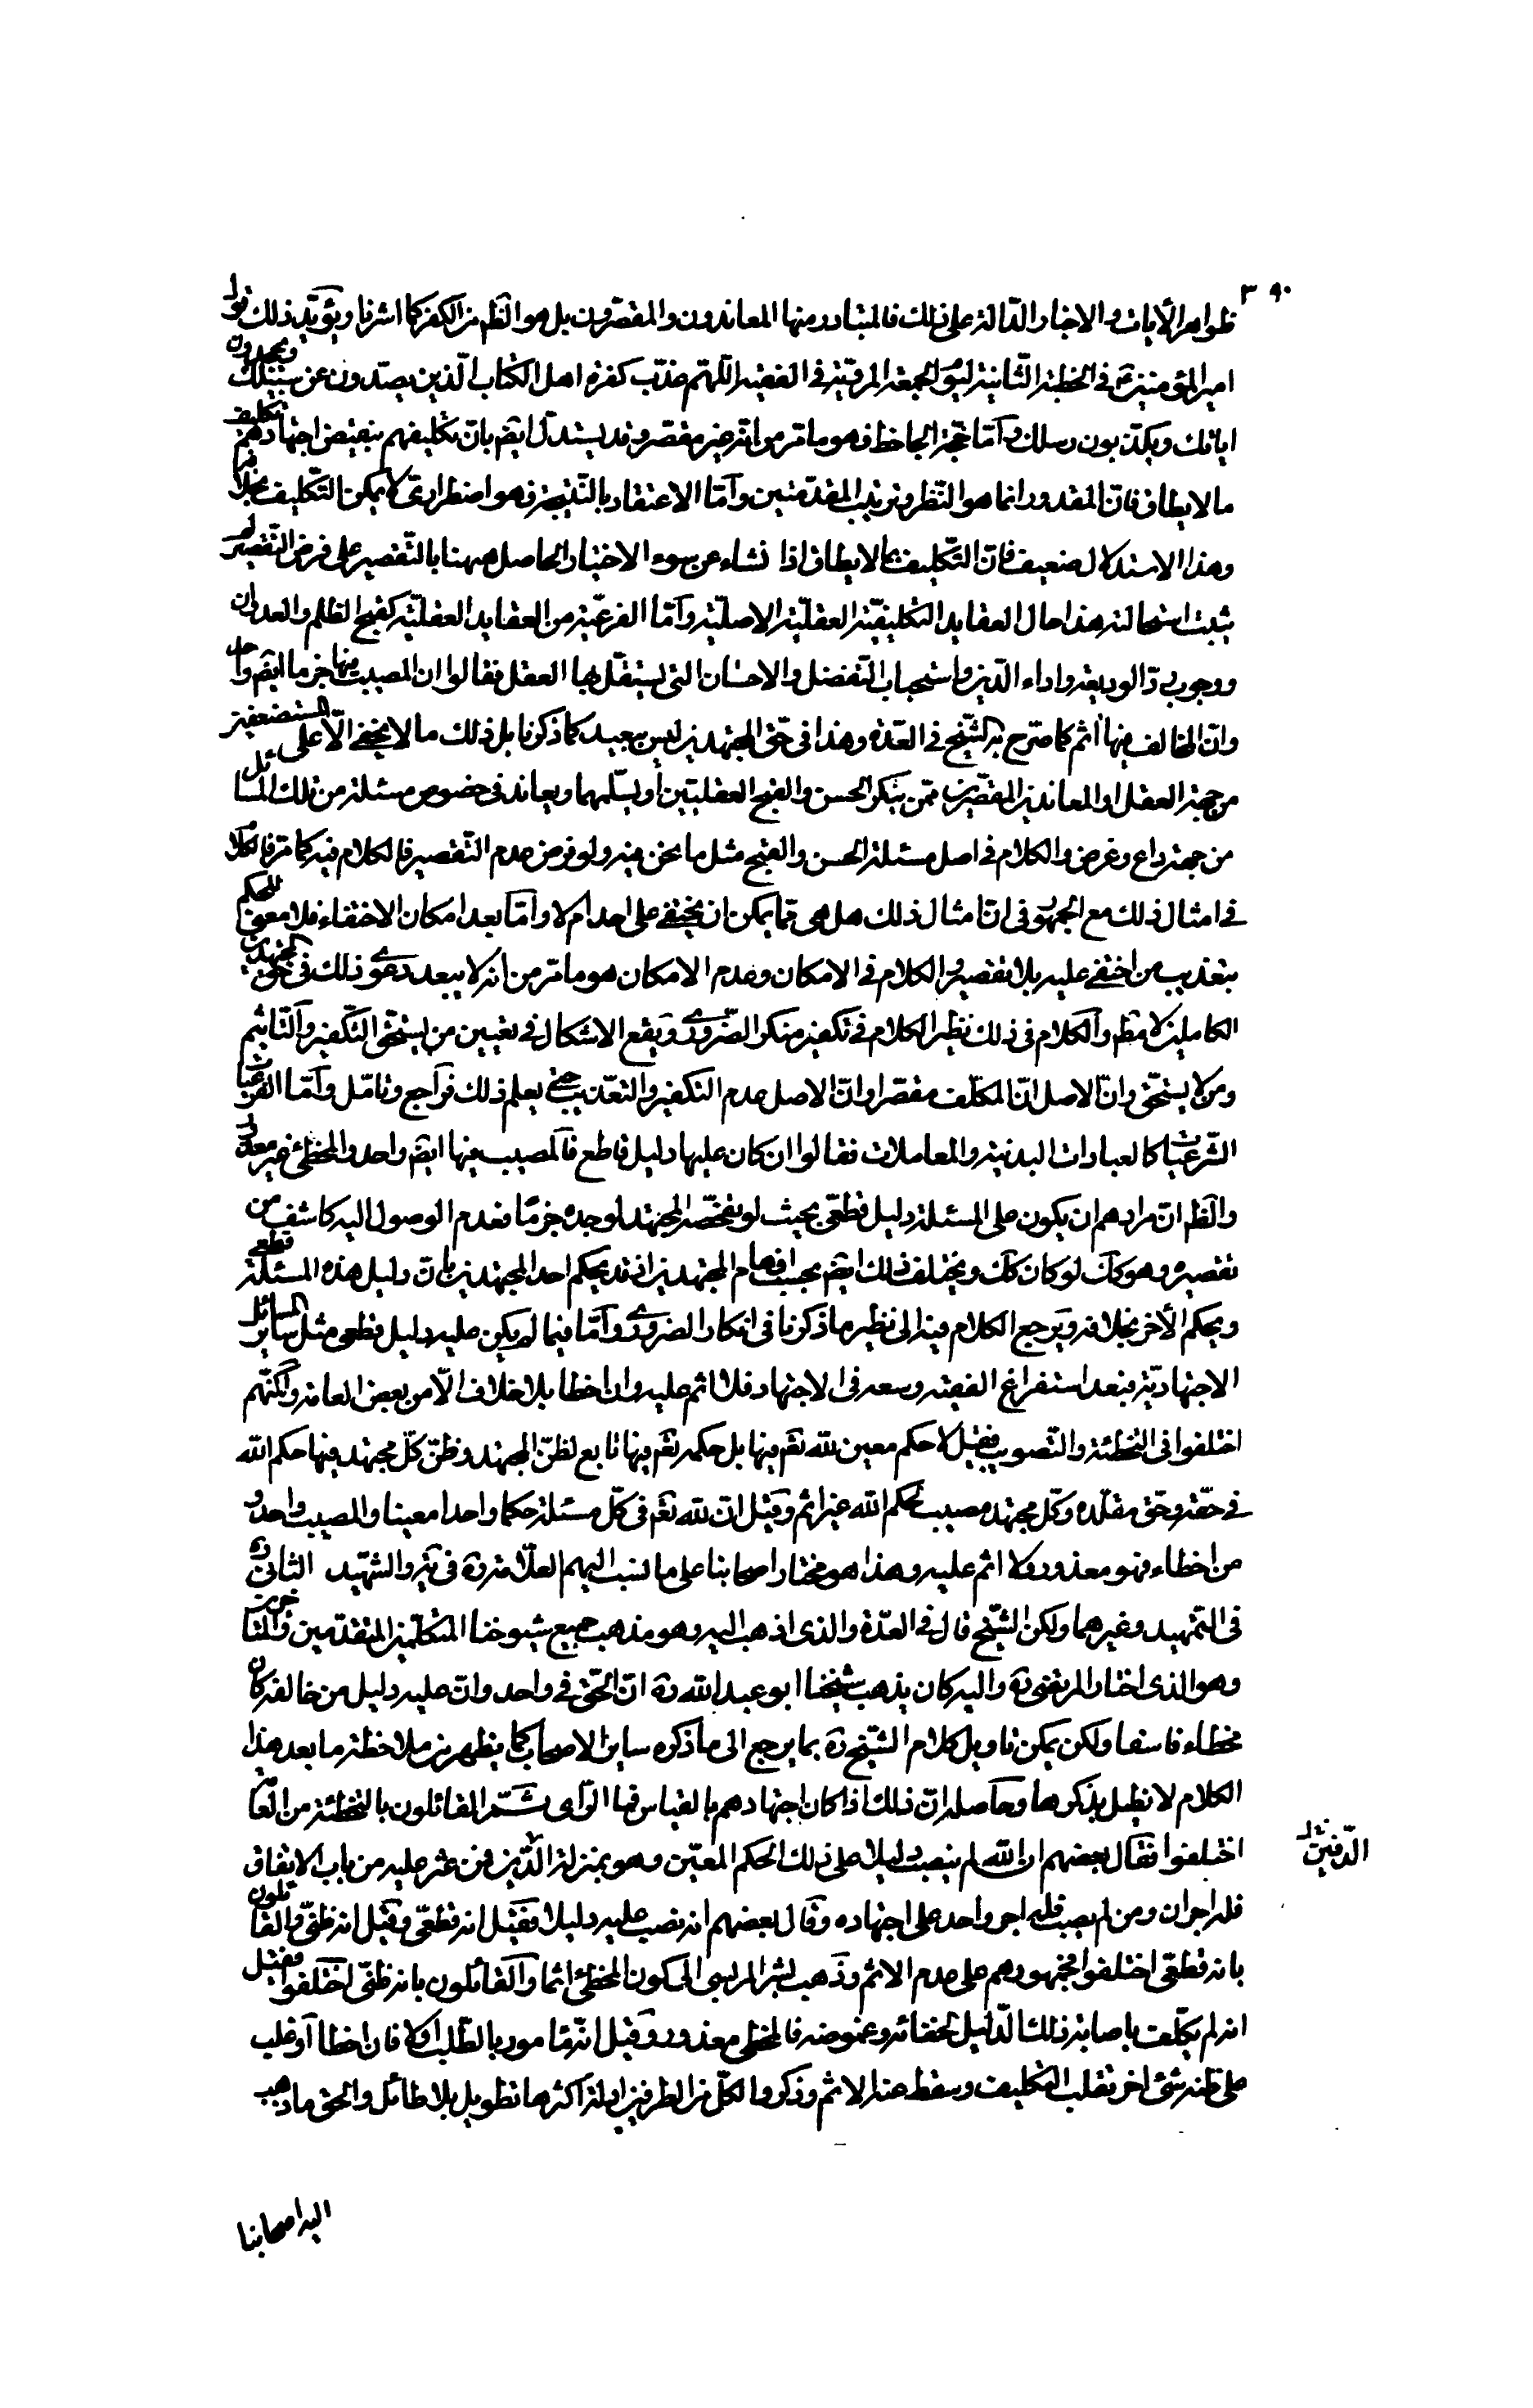 ٣٩٠
ظواهر الآيات والاخبار الدّالة على ذلك فالمتبادر منها المعاندون والمقصّرون بل هو الظم من الكفر كما اشرنا ويؤيّد ذلك قول
امير المؤمنين ع في الخطبة الثّانية ليوم الجمعة المرويّة في الفقيه اللّهم عذّب كفرة اهل الكتاب الّذين يصدّون عن سبيلك ويجحدون
اياتك ويكذّبون رسلك وامّا حجّة الجاحظ فهو ما مرّ من انّه غير مقصّر وقد يستدلّ ايضم بانّ تكليفهم بنقيض اجتهادهم تكليف
ما لا يطاق فانّ المقدور انما هو النّظر وترتيب المقدّمتين وامّا الاعتقاد بالنّتيجة فهو اضطراريّ لا يمكن التّكليف بخلافه
وهذا الاستدلال ضعيف فانّ التّكليف بما لا يطاق اذا نشاء عن سوء الاختيار الحاصل ههنا بالتّقصير على فرض التّقصير لم
يثبت استحالته هذا حال العقايد التكليفيّة العقليّة الاصليّة وامّا الفرعيّة من العقايد العقليّة كقبح الظلم والعدوان
ووجوب ردّ الوديعة واداء الدّين واستحباب التّفضل والاحسان التى يستقلّ بها العقل فقالوا ان المصيب منها جزما ايضم واحد
وانّ المخالف فيها اثم كما صرّح به الشّيخ في العدّة وهذا فى حقّ المجتهدين ليس ببعيد كما ذكرنا بل ذلك ما لا يخفى الّا على المستضعفين
من جهة العقل او المعاندين المقصّرين ممّن ينكر الحسن والقبح العقليّتين أو يسلّمهما ويعاند فى خصوص مسئلة من تلك المسائل
من جهة داع وغرض والكلام فى اصل مسئلة الحسن والقبح مثل ما نحن فيه ولو فرض عدم التّقصير فالكلام فيه كما مرّ فالكلام
في امثال ذلك مع الجمهور فى انّ امثال ذلك هل هى ممّا يمكن ان يختفى على احد ام لا وامّا بعد امكان الاختفاء فلا معنى للحكم
بتعذيب من اختفى عليه بلا تقصير والكلام فى الامكان وعدم الامكان هو ما مرّ من انه لا يبعد دعوى ذلك فى حق المجتهدين
الكاملين لا مطم والكلام فى ذلك نظير الكلام فى تكفير منكر الضّرورى ويقع الاشكال فى تعيين من يستحقّ التّكفير والتّاثيم
ومن لا يستحقّ وانّ الاصل انّ المكلّف مقصّر او انّ الاصل عدم التّكفير والتعذيب حتى يعلم ذلك فراجع وتامّل وامّا الفرعيّات
الشّرعيّات كالعبادات البدنية والمعاملات فقالوا ان كان عليها دليل قاطع فالمصيب فيها ايضم واحد والمخطئ غير معذور
والظم انّ مرادهم ان يكون على المسئلة دليل قطعيّ بحيث لو تفحّصه المجتهد لوجده جزمًا فعدم الوصول اليه كاشف عن
تقصيره وهو كك لو كان كك ويختلف ذلك ايضم بحسب افهام المجتهدين اذ قد يحكم احد المجتهدين بانّ دليل هذه المسئلة قطعى
ويحكم الأخر بخلافه ويرجع الكلام فيه الى نظير ما ذكرنا فى انكار الضرورى وامّا فيما لم يكن عليه دليل قطعى مثل ساير المسائل
الاجتهاديّة فبعد استفراغ الفقيه وسعه فى الاجتهاد فلا اثم عليه وان اخطا بلا خلاف الّا من بعض العامة ولكنّهم
اختلفوا فى التّخطئة والتّصويب فقيل لا حكم معين للّه تعم فيها بل حكمه تعم فيها تابع لظنّ المجتهد وظنّ كلّ مجتهد فيها حكم الله
في حقّه وحقّ مقلّده وكلّ مجتهد مصيب لحكم الله غير اثم وقيل انّ للّه تعم فى كلّ مسئلة حكما واحدا معينا والمصيب واحد و
من اخطاء فهو معذور ولا اثم عليه وهذا هو مختار اصحابنا على ما نسب اليهم العلّامة ره فى يب والشهيد الثانى ره
فى التّمهيد وغيرهما ولكن الشّيخ قال فى العدّة والذى اذهب اليه وهو مذهب جميع شيوخنا المتكلّمين المتقدّمين والمتاخرين
وهو الذى اختاره المرتضى ره واليه كان يذهب شيخنا ابو عبد الله ره انّ الحقّ فى واحد وانّ عليه دليل من خالفه كان
مخطاء فاسقا ولكن يمكن تاويل كلام الشّيخ ره بما يرجع الى ما ذكره ساير الاصحاب كما يظهر من ملاحظة ما بعد هذا
الكلام لا نطيل بذكرها وحاصله انّ ذلك اذا كان اجتهادهم بالقياس والراى ثمّ القائلون بالتخطئة من العامّة
اختلفوا فقال بعضهم ان الله لم ينصب دليلا على ذلك الحكم المعيّن وهو بمنزلة الدّفين فمن عثر عليه من باب الاتفاق
الدّفين خل
فله اجران ومن لم يصب فله اجر واحد على اجتهاده وقال بعضهم انه نصب عليه دليلا فقيل انه قطعيّ وقيل انه ظنّى والقائلون
بانه قطعّى اختلفوا فجمهورهم على عدم الاثم وذهب بشر المريسى الى كون المخطئ اثما والقائلون بانه ظنّى اختلفوا فقيل
انه لم يكلّف باصابة ذلك الدّليل لخفائه وغموضه فالمخطى معذور وقيل انّه مامور بالطّلب اوّلا فان اخطأ وغلب
على ظنه شئ اخر تقلب التكليف وسقط عنه الاثم وذكروا لكلّ من الطرفين ادلة اكثرها تطويل بلا طائل والحق ما ذهب
اليه اصحابنا